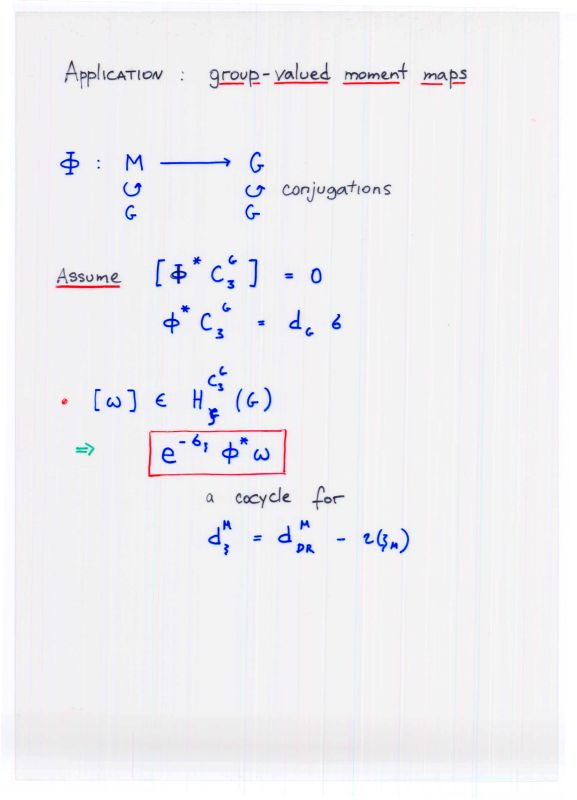 APPLICATION : group-valued moment maps
Φ : M ⟶ G
↺ ↺ conjugations
G G
Assume [Φ* C₃ᴳ] = 0
Φ* C₃ᴳ = d_G б
• [ω] ∈ H_ξ^{C₃ᴳ} (G)
⇒ e^{-б_ξ} Φ* ω
a cocycle for
d_ξ^M = d_{DR}^M - ι(ξ_M)